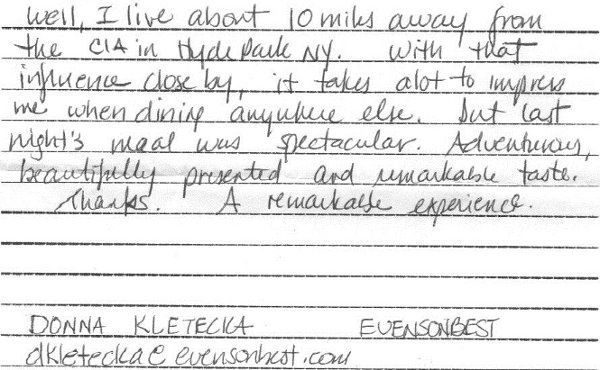 Well, I live about 10 miles away from
the CIA in Hyde Park NY. With that
influence close by, it takes alot to impress
me when dining anywhere else. But last
night's meal was spectacular. Adventurous,
beautifully presented and remarkable taste.
Thanks. A remarkable experience.
DONNA KLETECKA EVENSONBEST
dkletecka@evensonbest.com